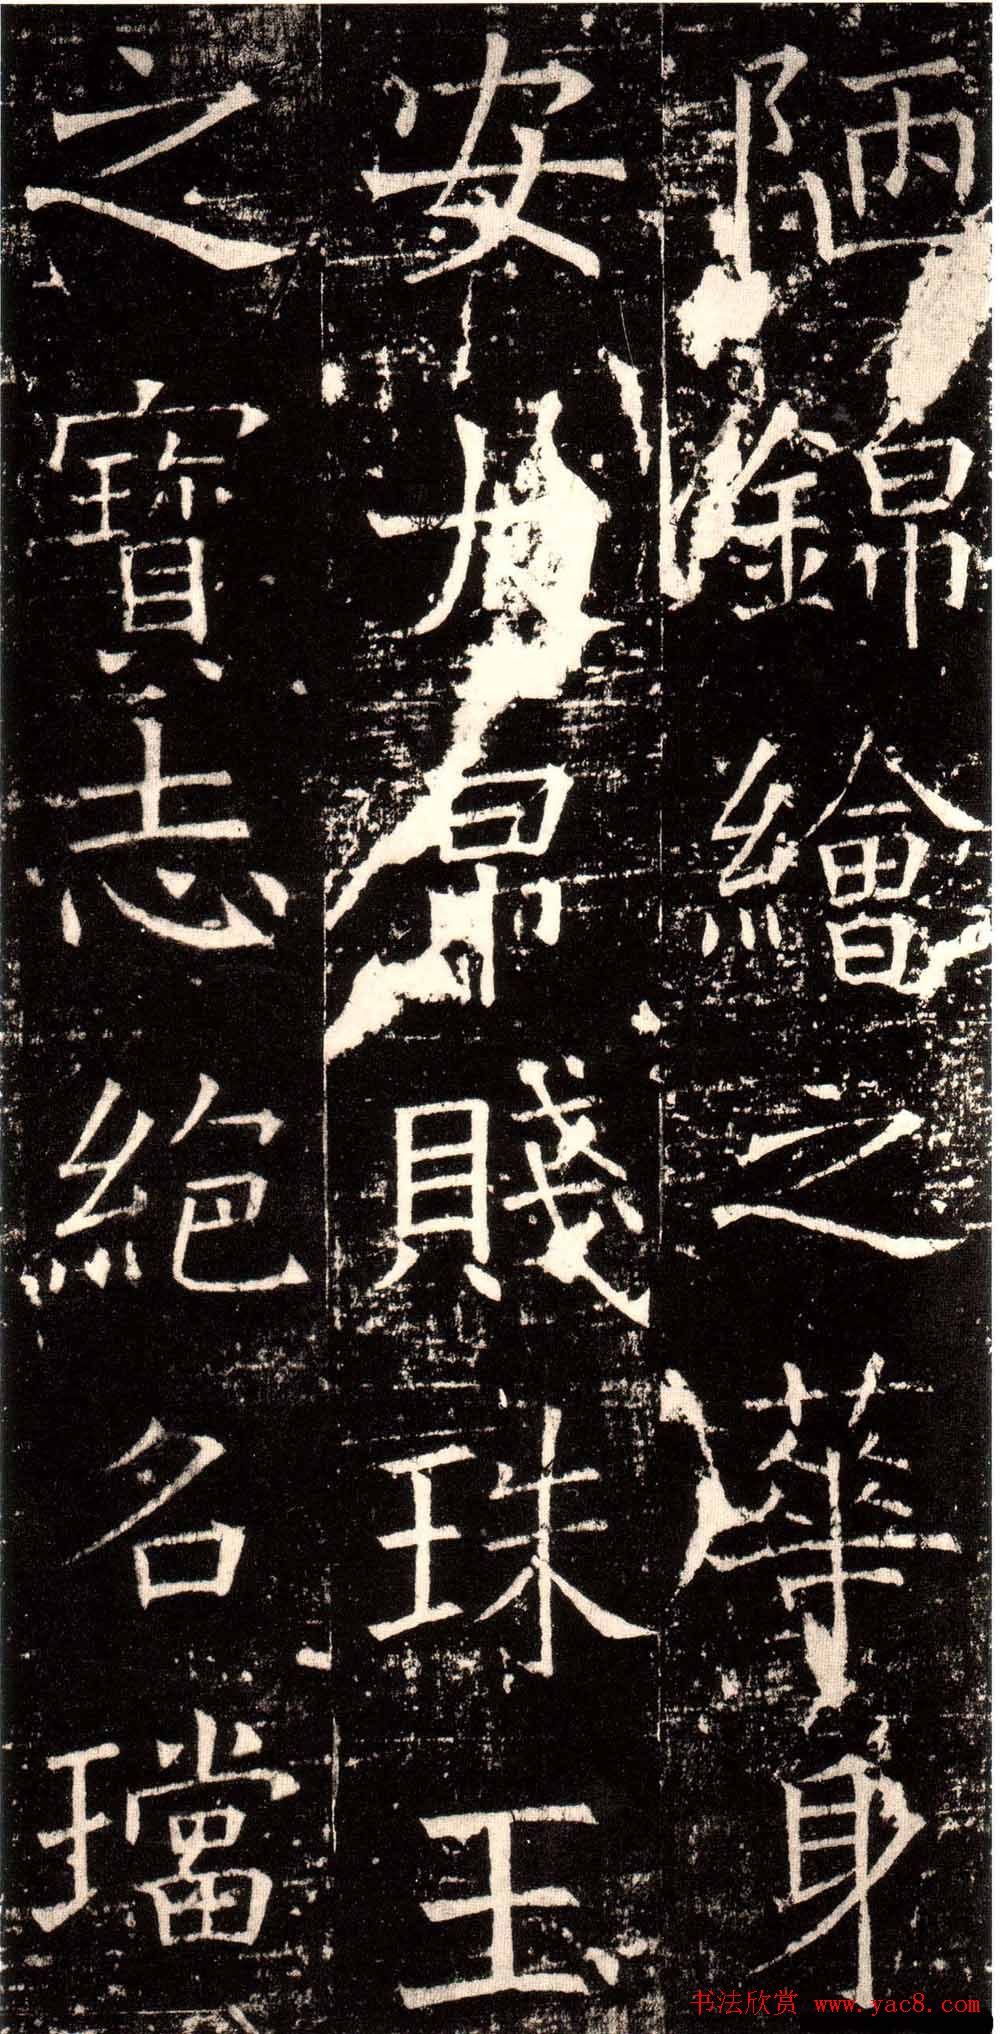 陋錦繪之華身
安大帛賤珠玉
之寶志絕名璫
书法欣赏 www.yac8.com